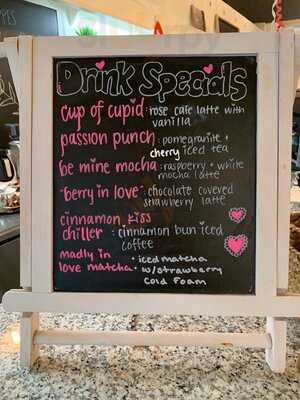 YPES
Drink Specials
cup of cupid: rose cafe latte with
vanilla
passion punch: pomegranite +
cherry iced tea
be mine mocha: raspberry + white
mocha latte
"berry in love": chocolate covered
strawberry latte
cinnamon kiss
chiller: cinnamon bun iced
coffee
madly in • iced matcha
love matcha • w/strawberry
Cold Foam